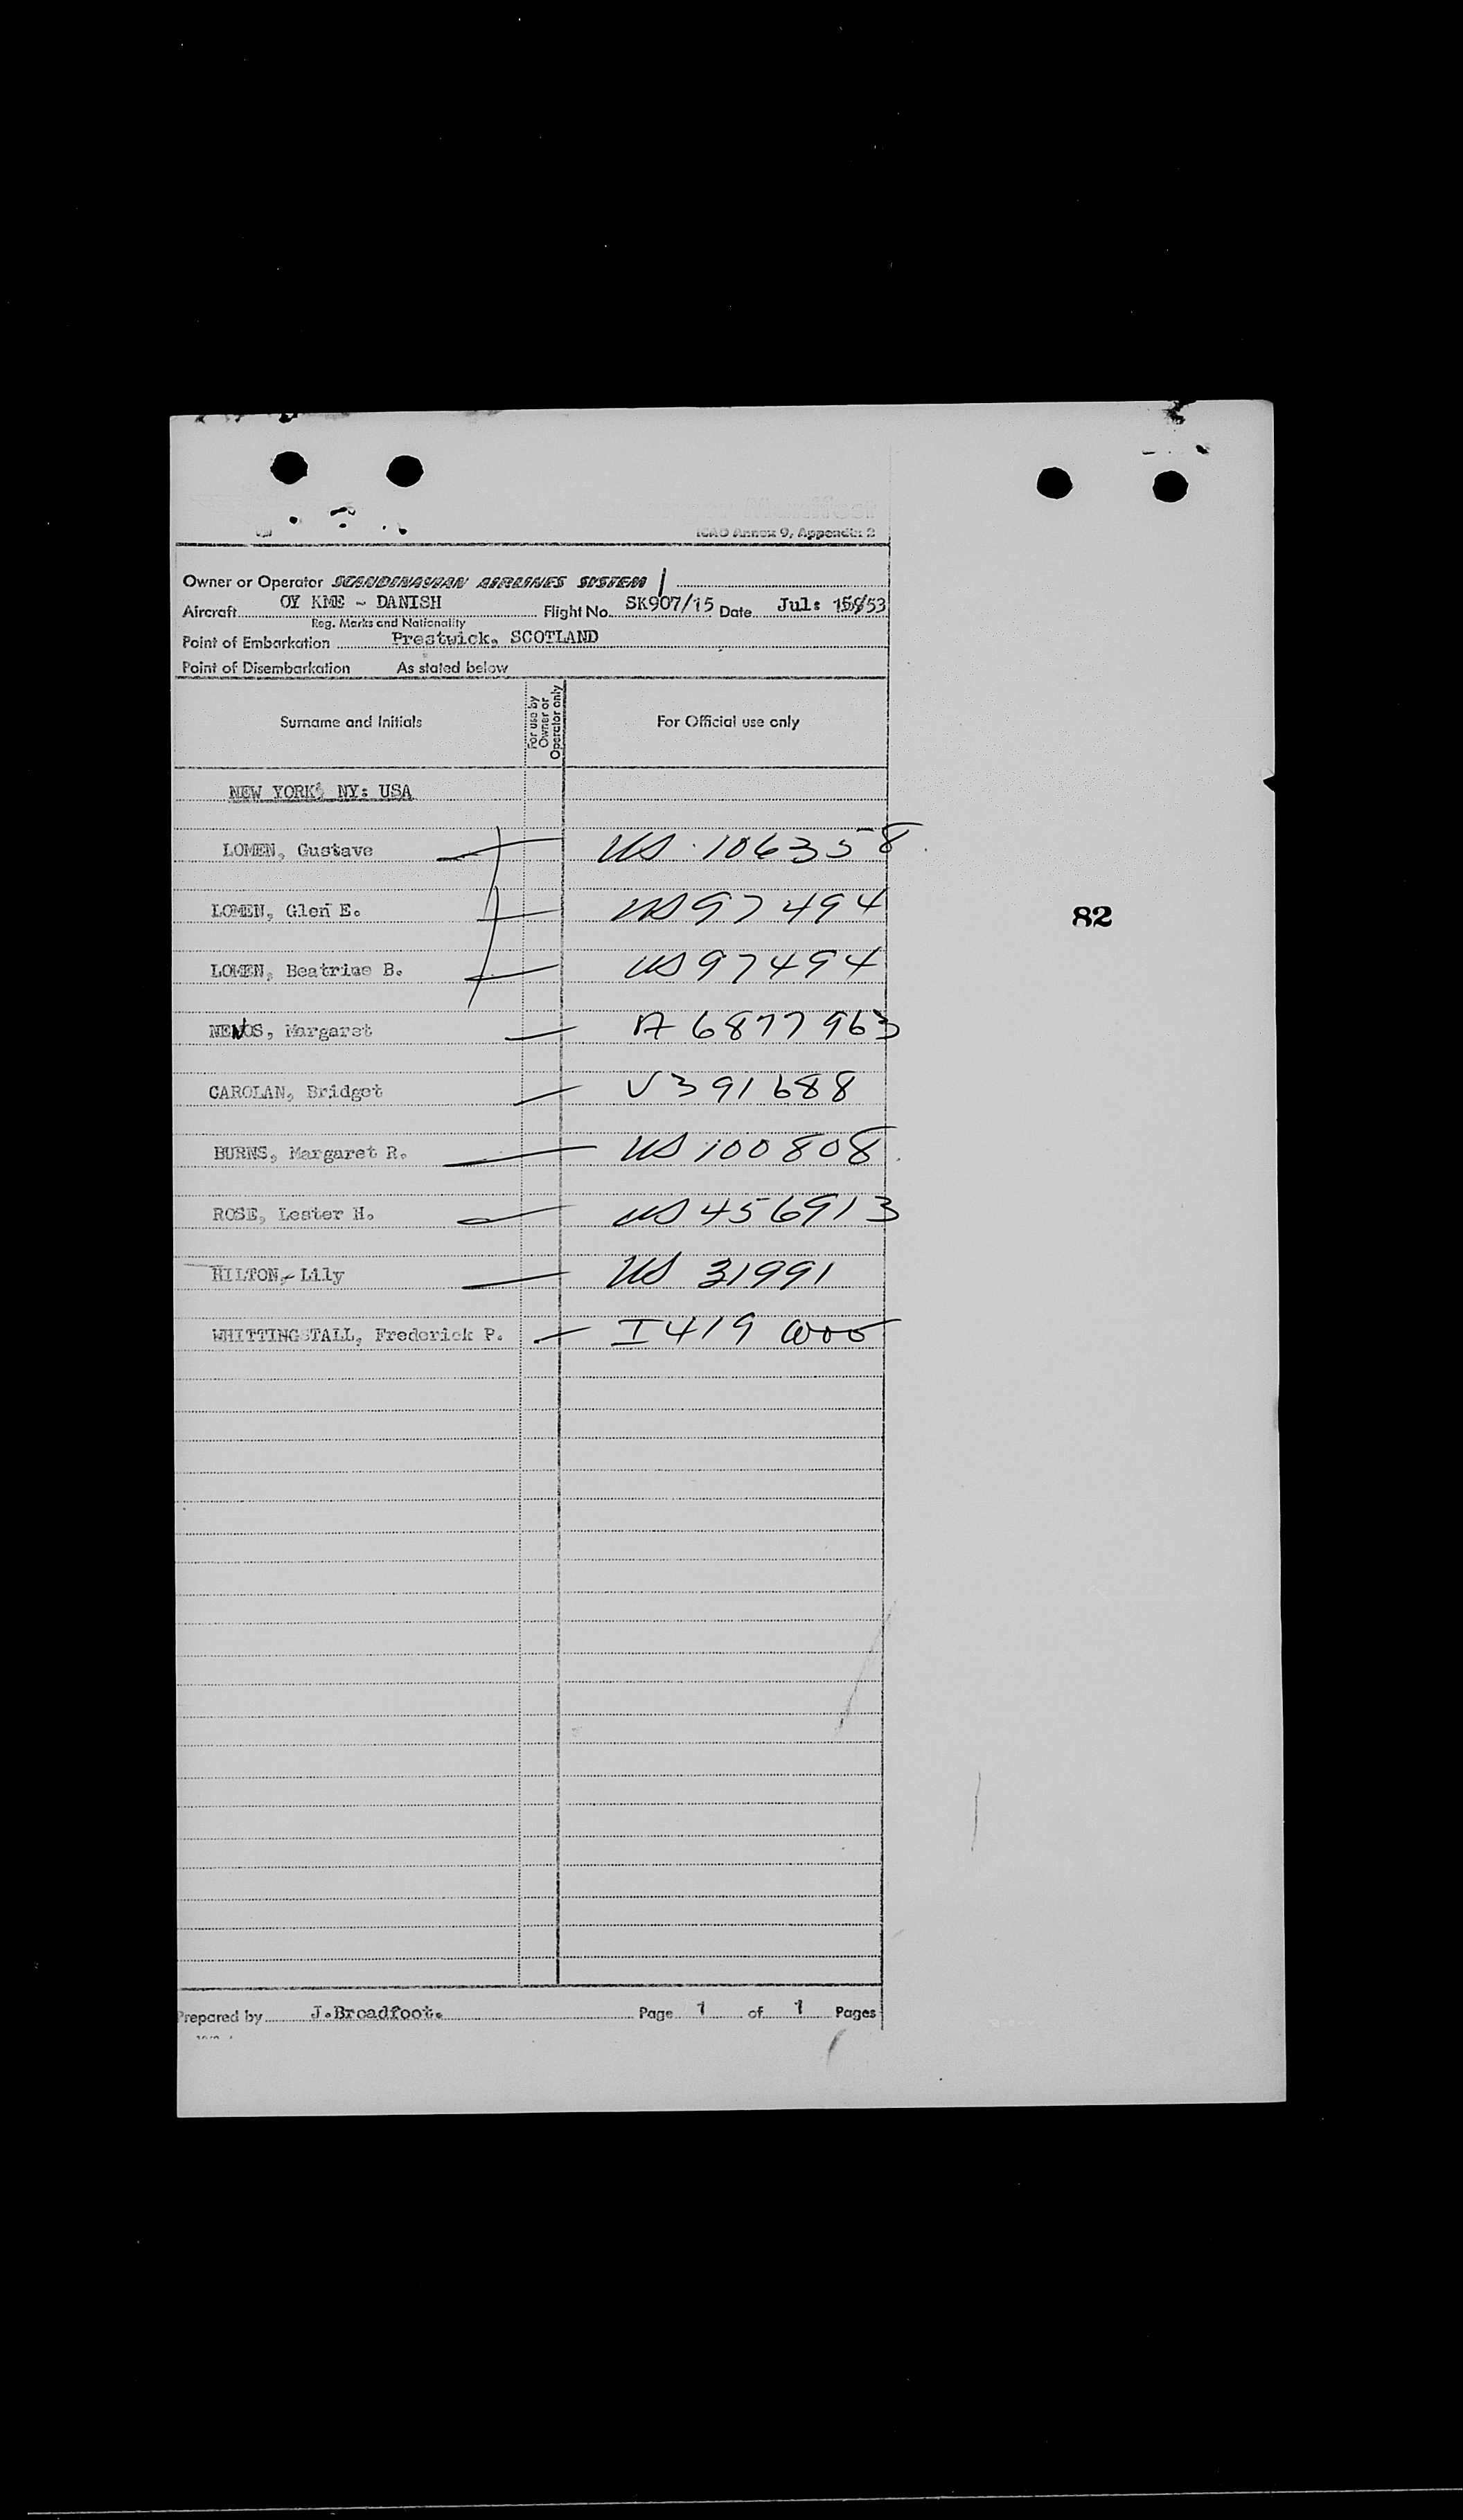 ICAO Annex 9, Appendix 2
Owner or Operator SCANDINAVIAN AIRLINES SYSTEM
Aircraft OY KME - DANISH Flight No. SK907/15 Date Jul: 15/53
Reg. Marks and Nationality
Point of Embarkation Prestwick, SCOTLAND
Point of Disembarkation As stated below
Surname and Initials For use by Owner or Operator only For Official use only
NEW YORK, NY: USA
LOMEN, Gustave US 106358
LOMEN, Glen E. US 97494
LOMEN, Beatrice B. US 97494
NENOS, Margaret A 6877963
CAROLAN, Bridget V391688
BURNS, Margaret R. US 100808
ROSE, Lester H. US 456913
HILTON, Lily US 31991
WHITTINGSTALL, Frederick P. I419
82
Prepared by J.Broadfoot. Page 1 of 1 Pages